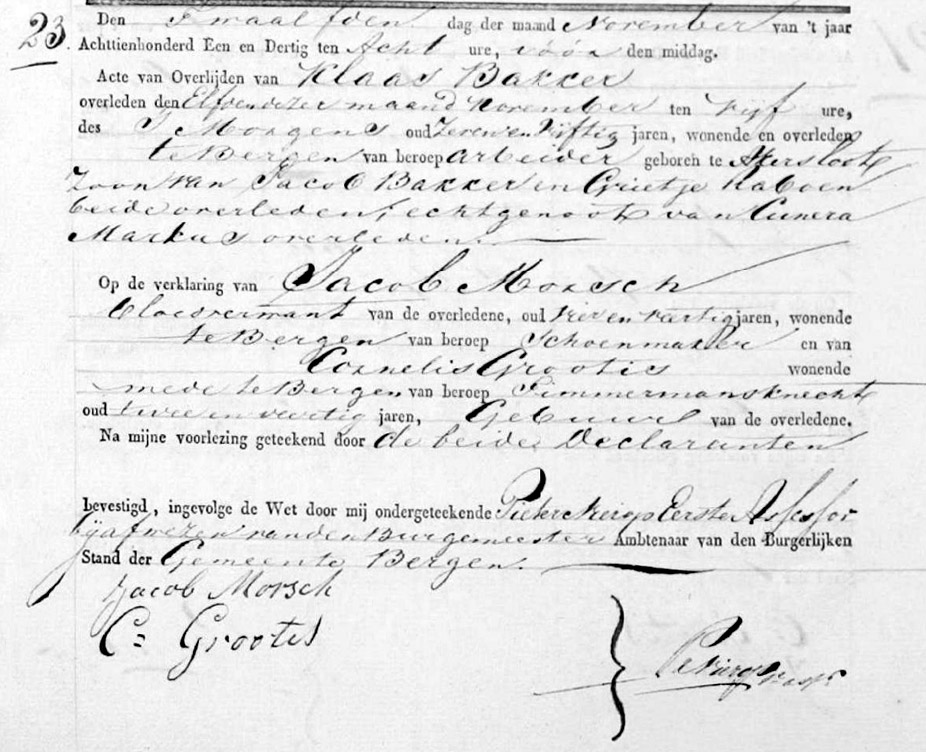 23.
Den Twaalfden dag der maand November van 't jaar
Achttienhonderd Een en Dertig ten Acht ure, vóór den middag.
Acte van Overlijden van Klaas Bakker
overleden den Elfden dezer maand November ten vijf ure,
des S Morgens oud Zeven en Vijftig jaren, wonende en overleden
te Bergen van beroep arbeider geboren te Akersloot
Zoon van Jacob Bakker en Grietje
beide overleden, echtgenoot van Cunera
Markus overleden.
Op de verklaring van Jacob Morsch
Cloesvermant van de overledene, oud vier en veertig jaren, wonende
te Bergen van beroep Schoenmaker en van
Cornelis Grootes wonende
mede te Bergen van beroep Timmermansknecht
oud twee en veertig jaren, Gebuur van de overledene.
Na mijne voorlezing geteekend door de beide Declaranten
bevestigd, ingevolge de Wet door mij ondergeteekende Pieter Eerste Assessor
bij afwezen van den Burgemeester Ambtenaar van den Burgerlijken
Stand der Gemeente Bergen.
Jacob Morsch
C= Grootes